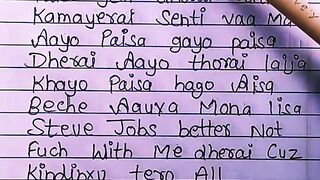 Kamayerai Senti vaa Ma
Aayo Paisa gayo paisa
Dherai Aayo thorai lajja
Khayo Paisa hago Aisa
Beche Aauxa Mona lisa
Steve Jobs better Not
Fuch With Me dherai Cuz
Kindinxu tero All